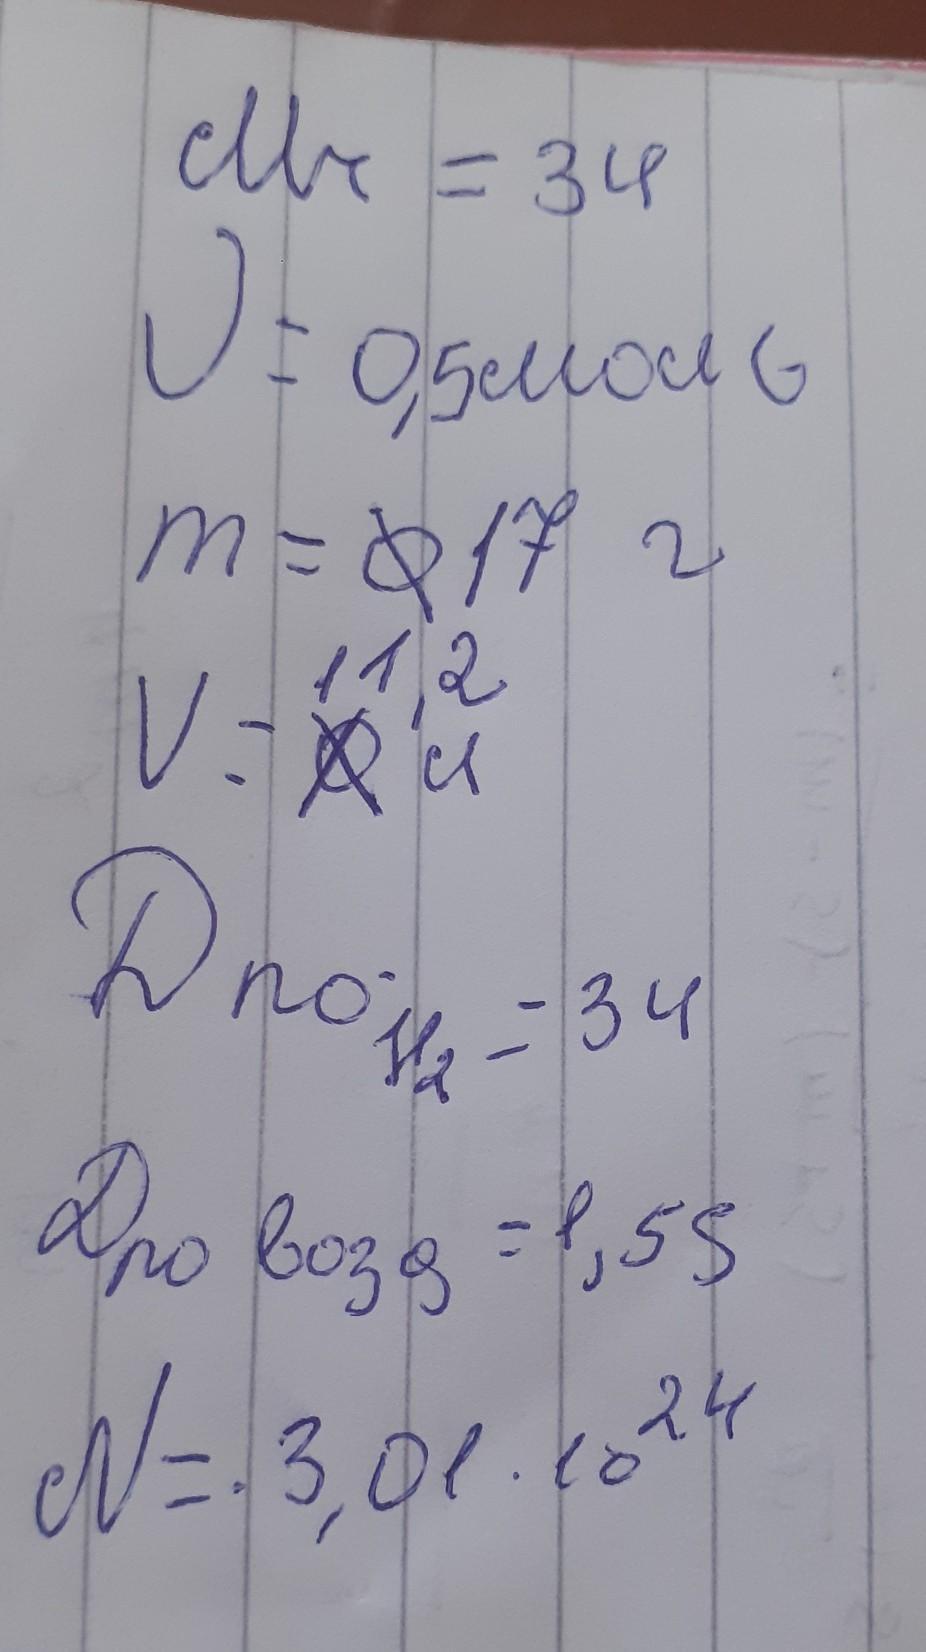 Mr = 34
ν = 0,5моль
m = 17 г
V = 11,2 л
D по H₂ = 34
D по возд = 1,55
N = 3,01 · 10²⁴